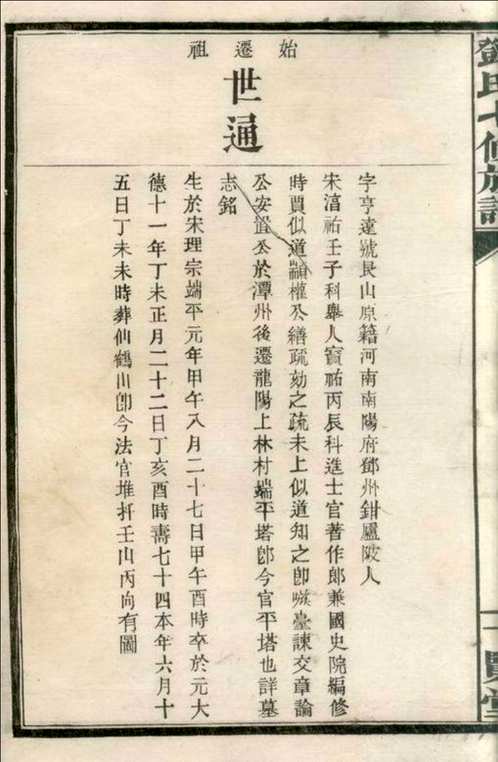 鄧氏七修族譜
一賢堂
始遷祖
世通
字亨達號艮山原籍河南南陽府鄧州鉗廬陂人
宋湻祐壬子科舉人寳祐丙辰科進士官著作郎兼國史院編修
時賈似道顓權公繕疏劾之疏未上似道知之卽嗾臺諫交章論
公安置公於潭州後遷龍陽上林村端平塔卽今官平塔也詳墓
志銘
生於宋理宗端平元年甲午八月二十七日甲午酉時卒於元大
德十一年丁未正月二十二日丁亥酉時壽七十四本年六月十
五日丁未未時葬仙鶴山卽今法官堆扦壬山丙向有圖